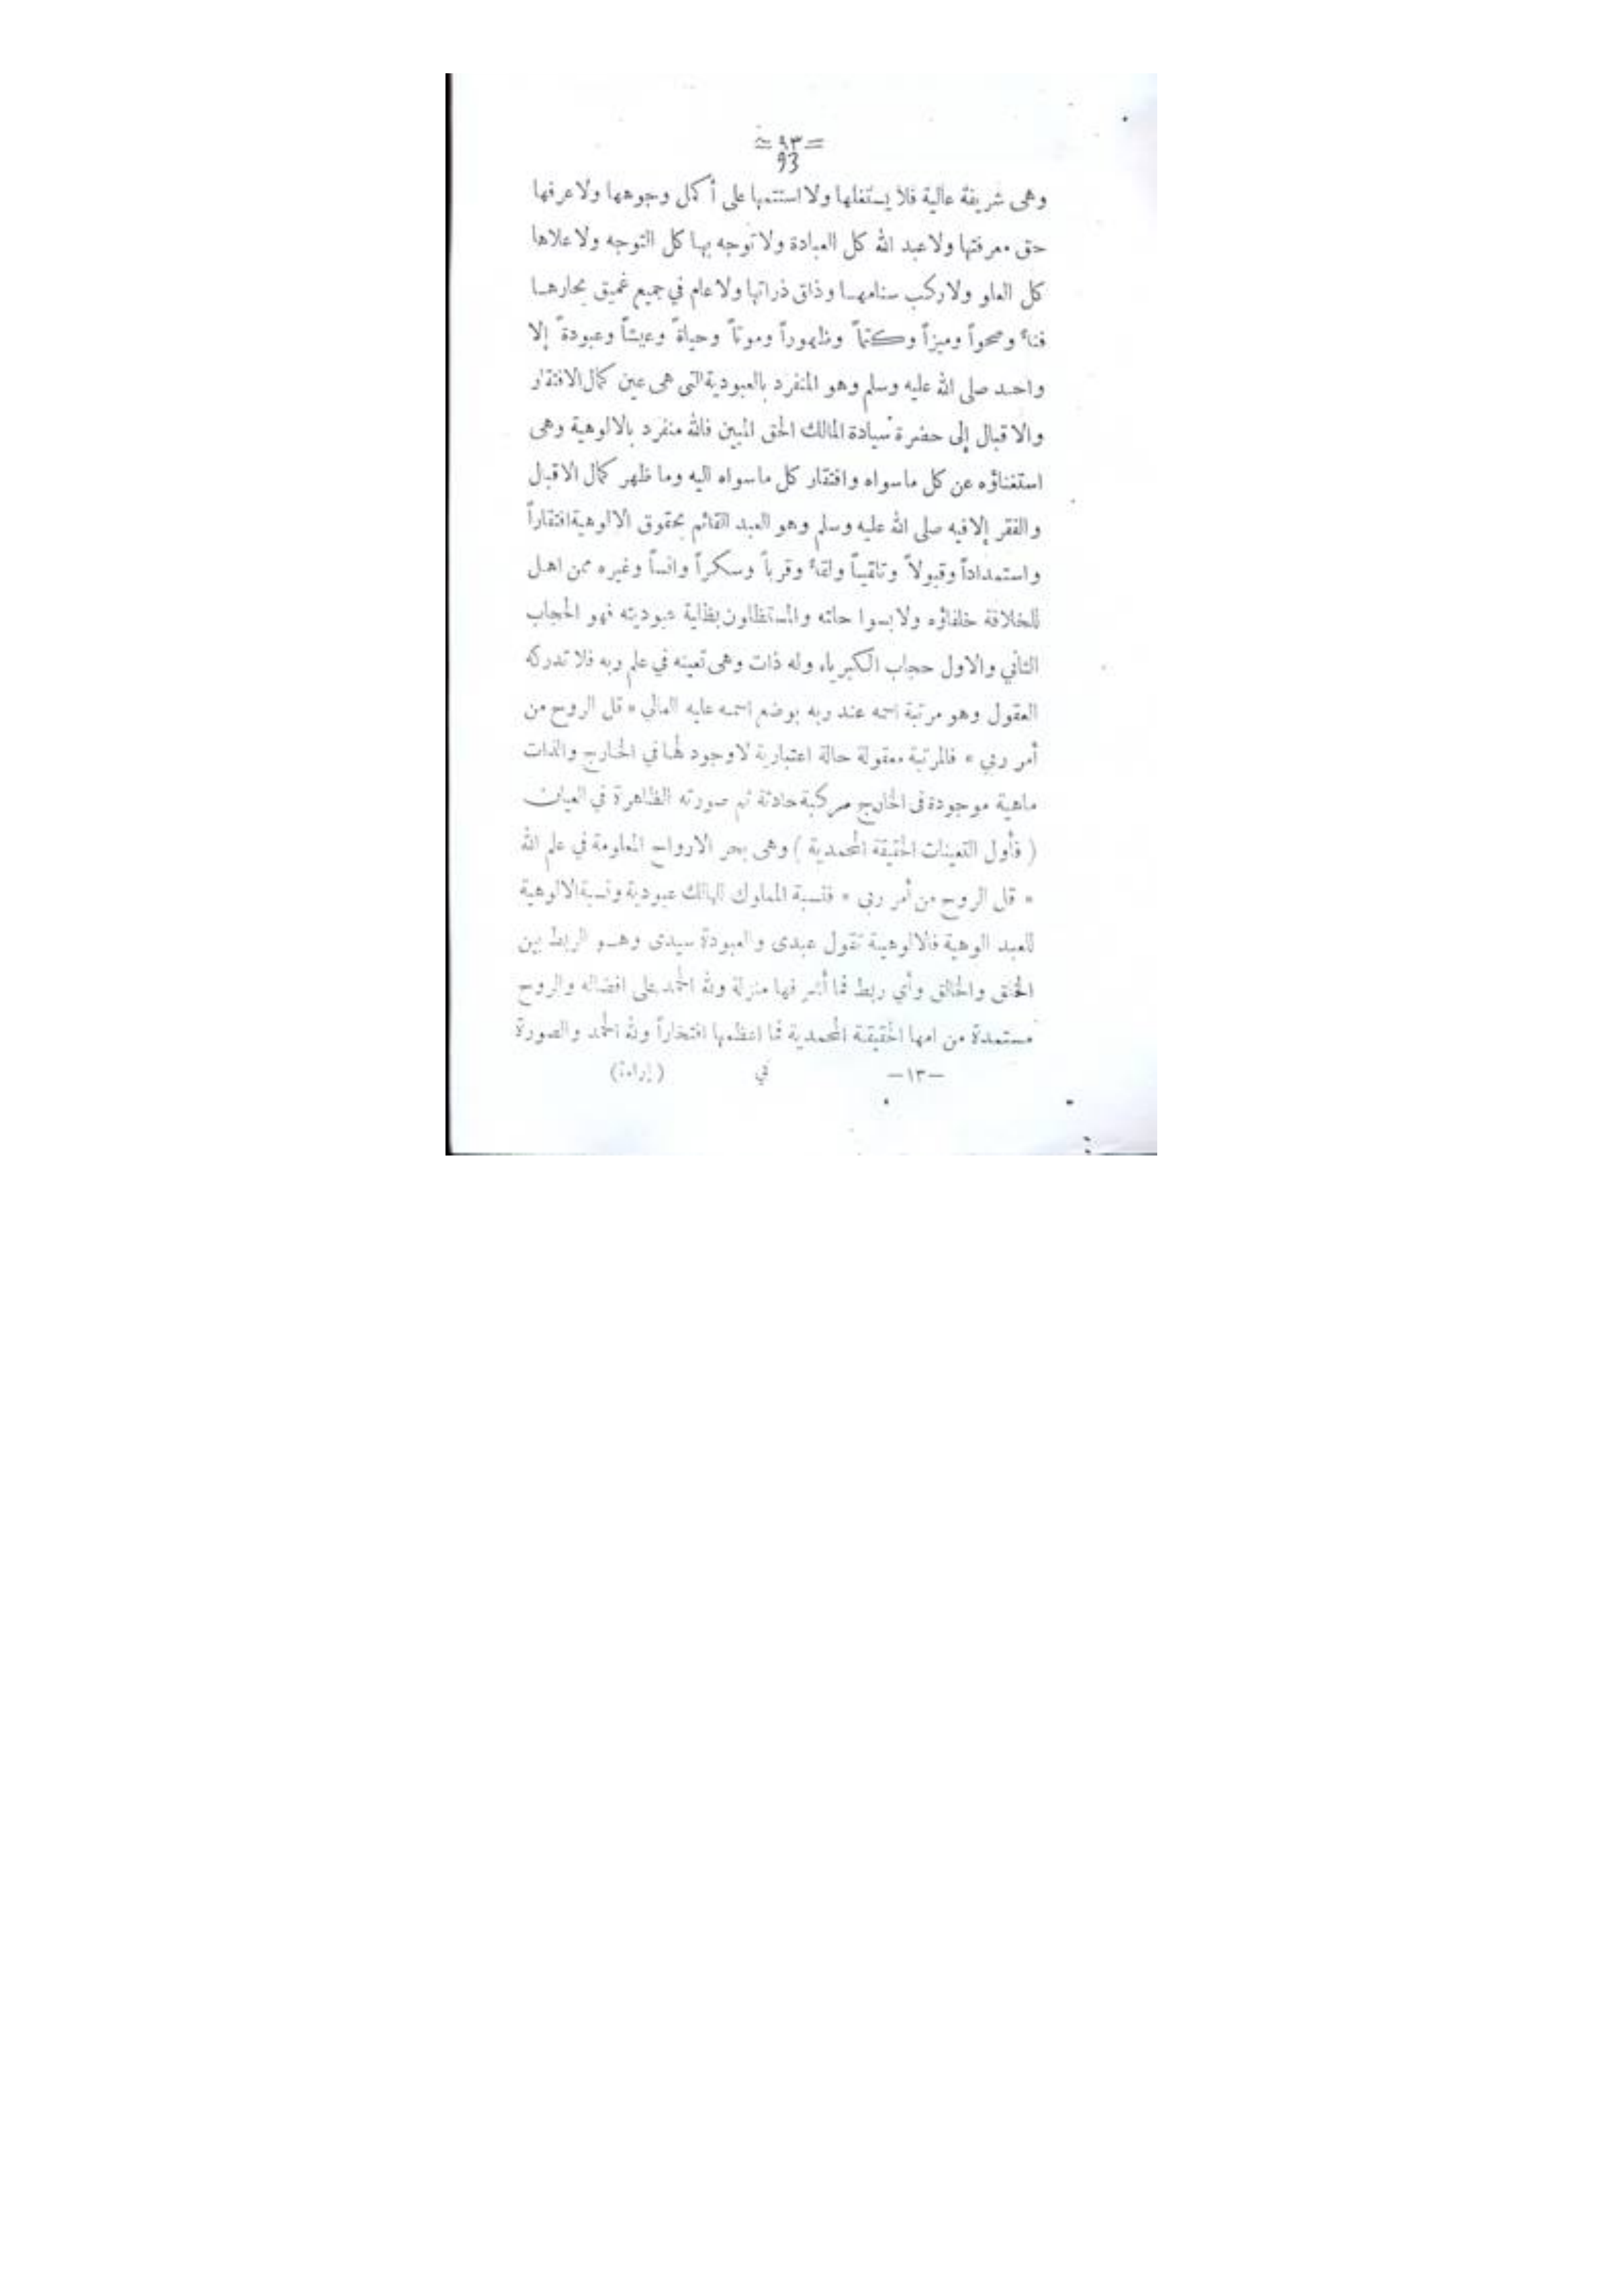 = ٩٣ =
93
وهى شريفة عالية فلا يستغلها ولا استتمها على أكمل وجوهها ولا عرفها
حق معرفتها ولا عبد الله كل العبادة ولا توجه بها كل التوجه ولا علاها
كل العلو ولا ركب سنامها وذاق ذراتها ولا عام في جميع غميق بحارها
فناءً وصحواً وميزاً وكتماً وظهوراً وموتاً وحياةً وعيشاً وعبودةً إلا
واحد صلى الله عليه وسلم وهو المنفرد بالعبودية التى هى عين كمال الافتقار
والاقبال إلى حضرة سيادة المالك الحق المبين فالله منفرد بالالوهية وهى
استغناؤه عن كل ماسواه وافتقار كل ماسواه اليه وما ظهر كمال الاقبال
والفقر إلا فيه صلى الله عليه وسلم وهو العبد القائم بحقوق الالوهية افتقاراً
واستمداداً وقبولاً وتلقياً ولقاءً وقرباً وسكراً وانساً وغيره ممن اهل
للخلافة خلفاؤه ولابسوا حلته والمستظلون بظلية عبوديته فهو الحجاب
الثاني والاول حجاب الكبرياء وله ذات وهى تعينه في علم ربه فلا تدركه
العقول وهو مرتبة اسمه عند ربه بوضع اسمه عليه العالي « قل الروح من
أمر ربي » فالمرتبة معقولة حالة اعتبارية لا وجود لها في الخارج والذات
ماهية موجودة فى الخارج مركبة حادثة ثم صورته الظاهرة في العيان
( فأول التعينات الحقيقة المحمدية ) وهى بحر الارواح المعلومة في علم الله
« قل الروح من أمر ربى » فنسبة المملوك للمالك عبودية ونسبة الالوهية
للعبد الوهية فالالوهية تقول عبدى والعبودة سيدى وهو الربط بين
الخلق والخالق وأي ربط فما أشرفها منزلة ولله الحمد على افضاله والروح
مستمدة من امها الحقيقة المحمدية فما اعظمها افتخاراً ولله الحمد والصورة
—١٣— في (إراءة)